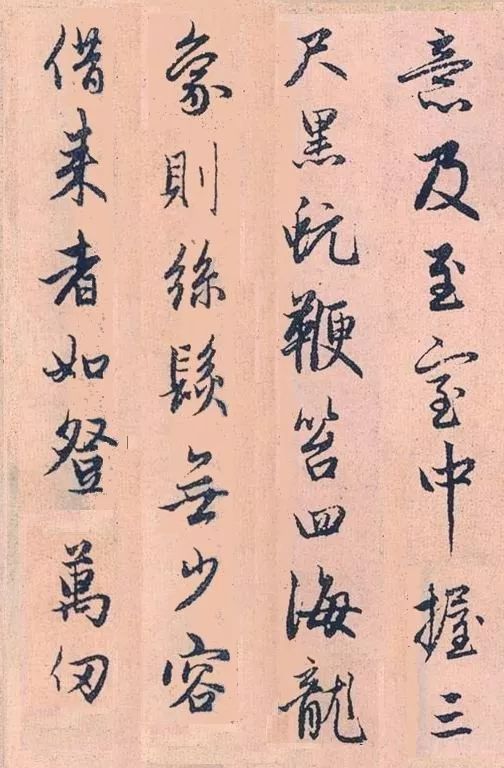 意及至室中握三
尺黑蚖鞭笞四海龍
象則絲髮無少容
借来者如登萬仞